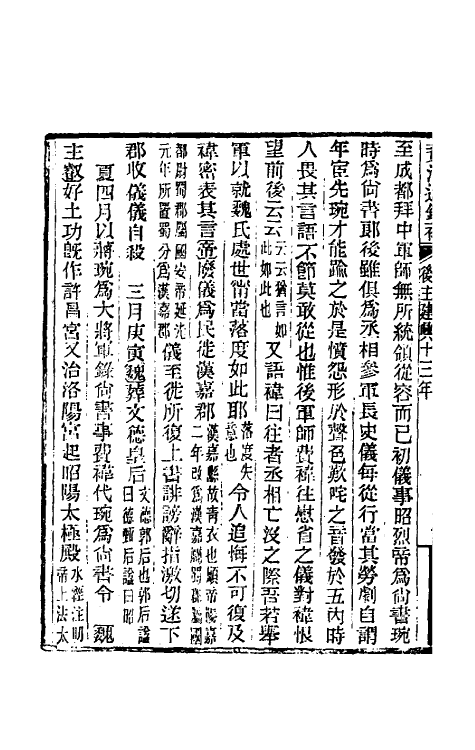 後主建興十三年
至成都拜中軍師無所統領從容而已初儀事昭烈帝爲尚書琬
時爲尚書郎後雖俱爲丞相參軍長史儀每從行當其勞劇自謂
年宦先琬才能踰之於是憤怨形於聲色歎咤之音發於五內時
人畏其言語不節莫敢從也惟後軍師費禕往慰省之儀對禕恨
望前後云云云云猶言如此如此也又語禕曰往者丞相亡沒之際吾若舉
軍以就魏氏處世甯當落度如此耶落度失意也令人追悔不可復及
禕密表其言帝廢儀爲民徙漢嘉郡漢嘉縣故青衣也順帝陽嘉二年改爲漢嘉屬蜀郡屬國都尉蜀郡屬國安帝延光元年所置蜀分爲漢嘉郡儀至徙所復上書誹謗辭指激切遂下
郡收儀儀自殺 三月庚寅魏葬文德皇后文德郭后也郭后諡曰德甄后諡曰昭
夏四月以蔣琬爲大將軍錄尚書事費禕代琬爲尚書令 魏
主叡好土功旣作許昌宮又治洛陽宮起昭陽太極殿水經注明帝上法太